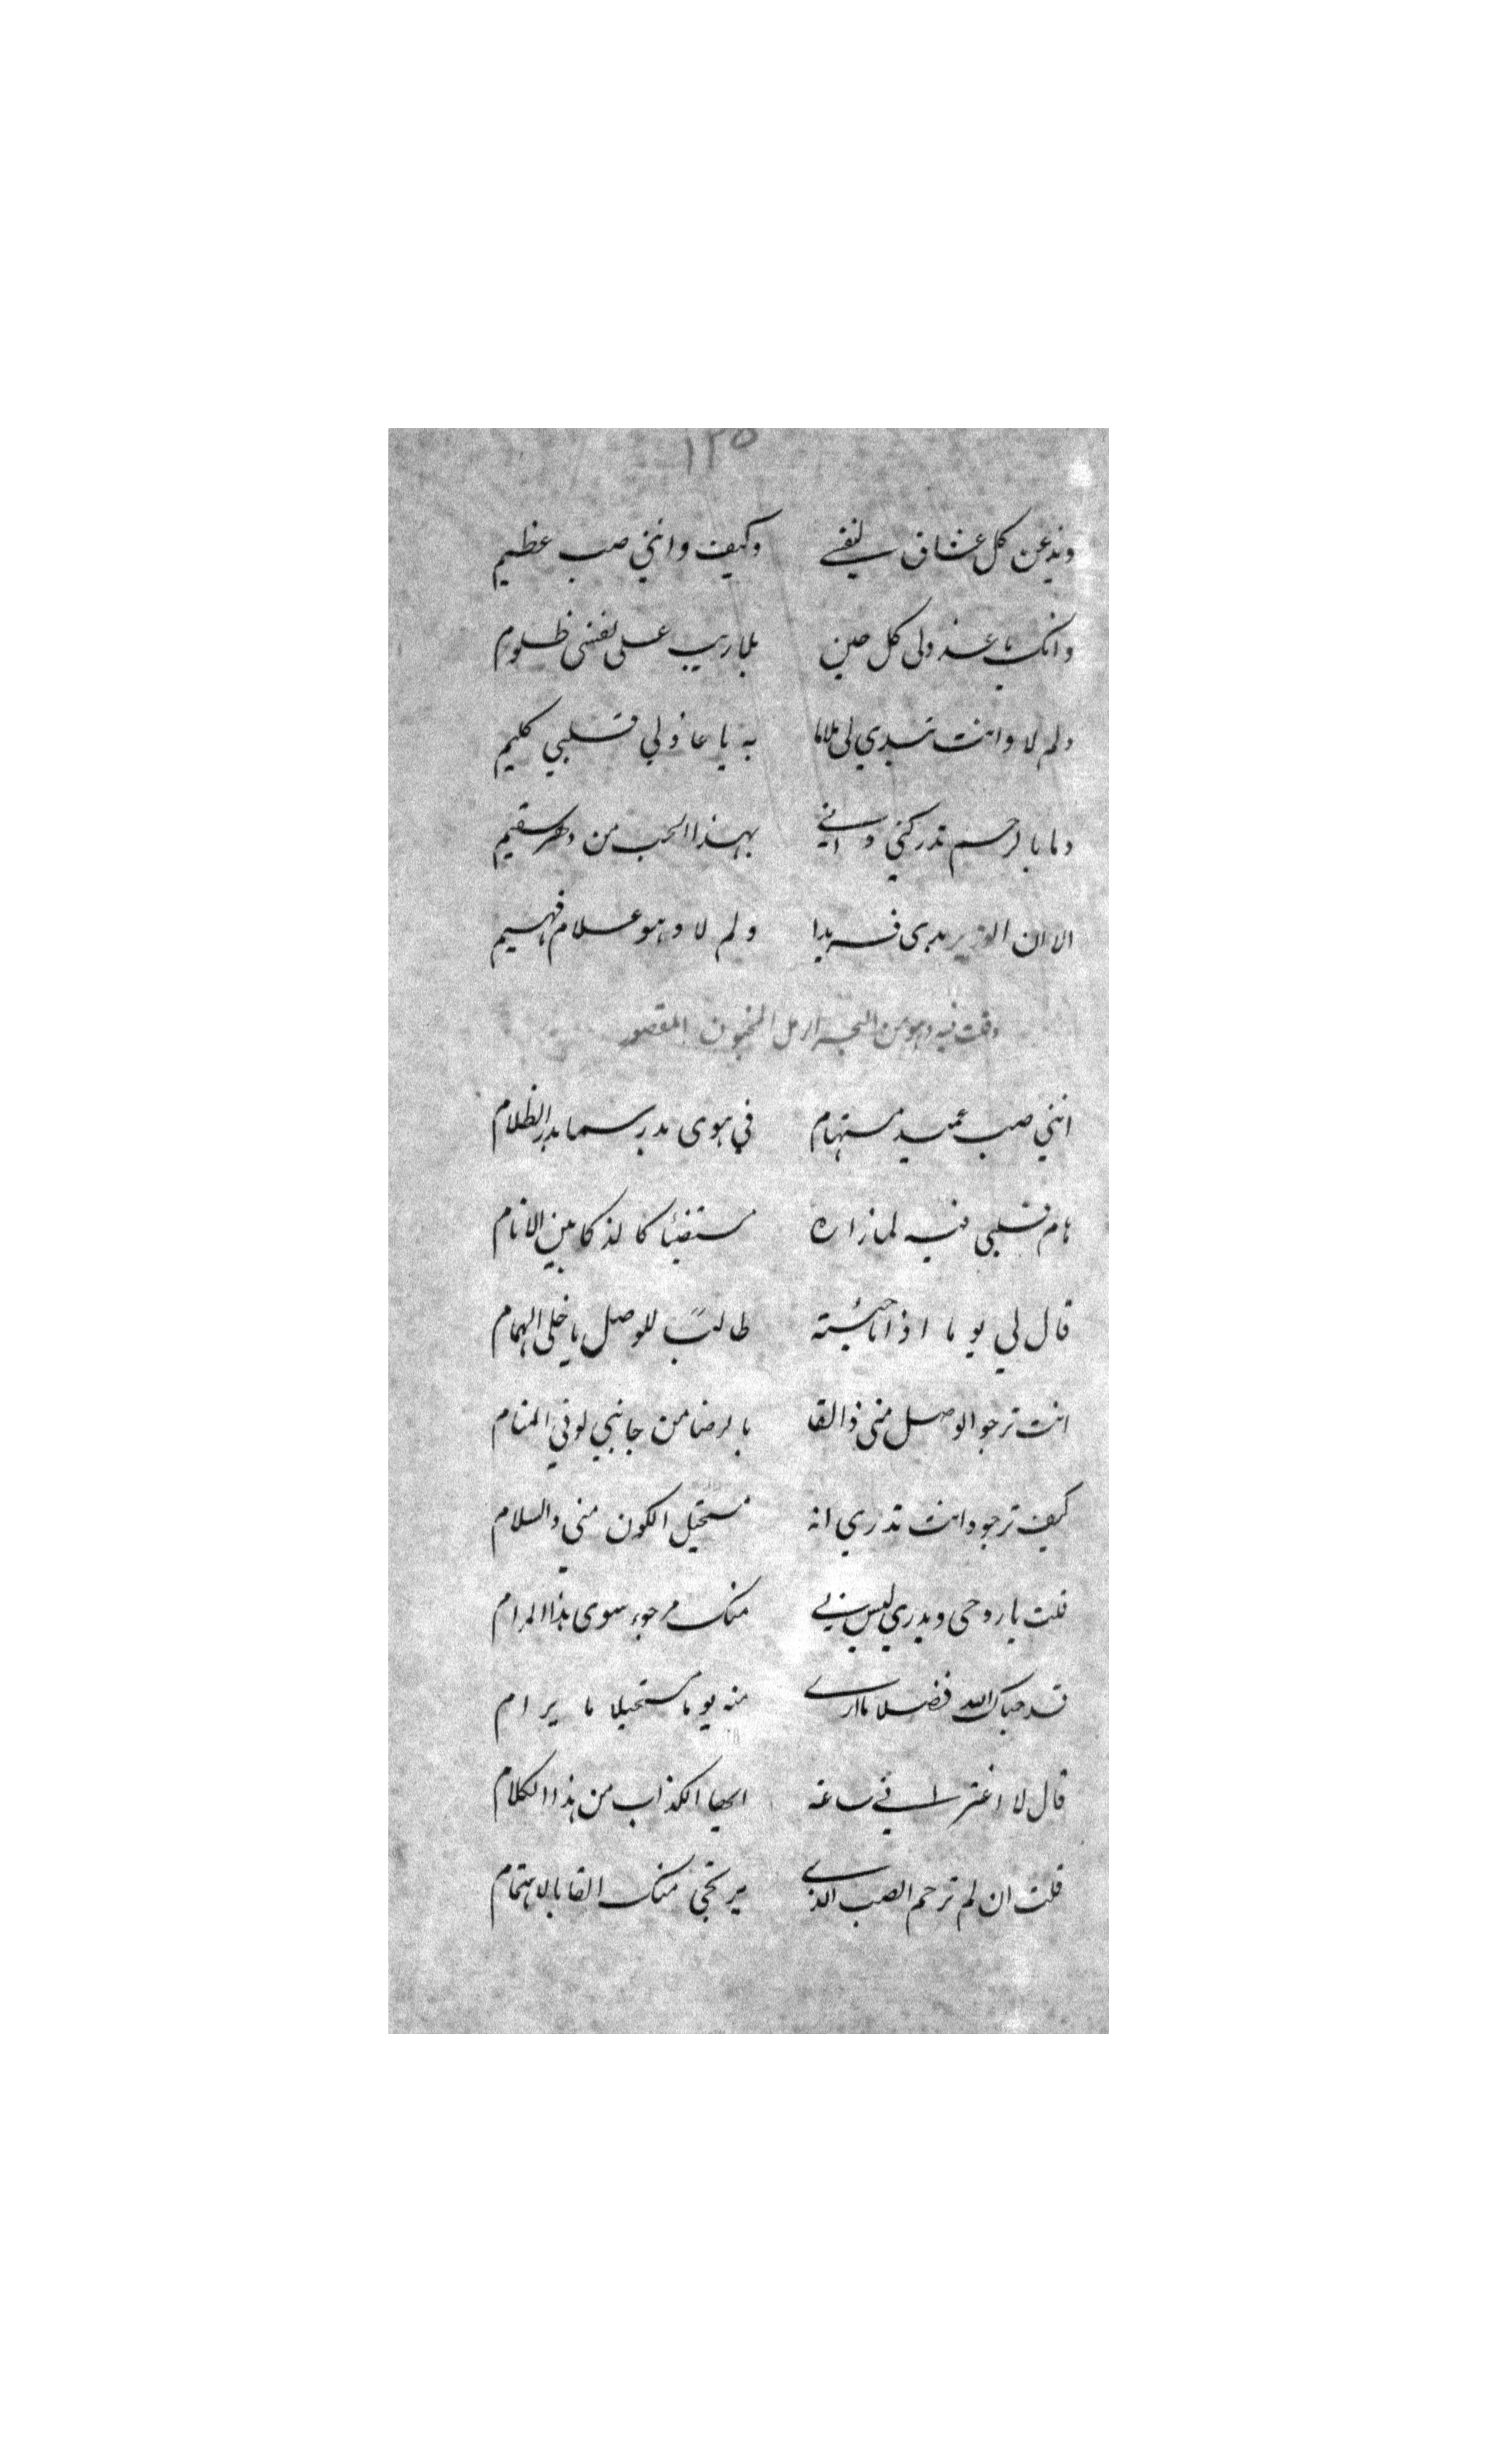 ١٣٥
عن كل عشاق لنفي وكيف وانني صب عظيم
وانك يا عذولى كل حين بلا ريب على نفسى ظلوم
ولم لا وانت تبدي لى ملاما به يا عاذلي قلبي كليم
وما بالرحم تدركني واني بهذا الحب من دهر سقيم
الا ان الوزير يدى فريدا ولم لا وهو علام فهيم
وقلت فيه وهو من البحر الرمل المخبون المقصور
انني صب عميد مستهام في هوى بدر سما بدر الظلام
هام قلبي فيه لما زاره مستضيئا كالذكا بين الانام
قال لي يوما اذا ما جئته طالبًا للوصل يا خلى الهمام
انت ترجو الوصل منى ذا لقا بالرضا من جانبي لو في المنام
كيف ترجو وانت تدري انه مستحيل الكون مني والسلام
قلت يا روحى وبدري ليس لي منك مرجوء سوى هذا المرام
قد حباك الله فضلا ما ارى منه يوما مستحيلا ما يرام
قال لا اغتر اني ساعة ايها الكذاب من هذا الكلام
قلت ان لم ترحم الصب الذي يرتجى منك القا بالاهتمام